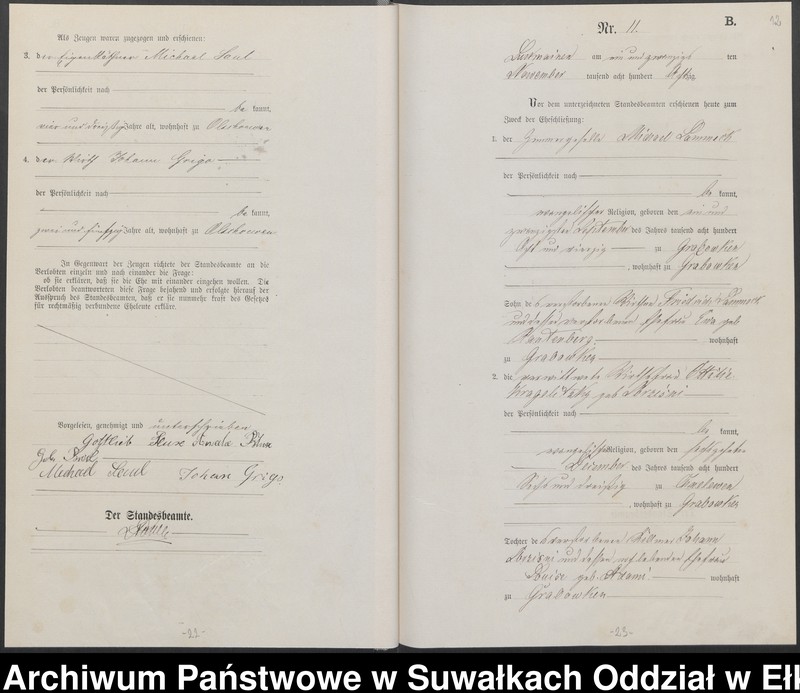 Als Zeugen waren zugezogen und erschienen:
3. der Eigenkäthner Michael
der Persönlichkeit nach
be kannt,
vier und dreißig Jahre alt, wohnhaft zu Olschöwen
4. der Wirth Johann Grigo
der Persönlichkeit nach
be kannt,
zwei und fünfzig Jahre alt, wohnhaft zu Olschöwen
In Gegenwart der Zeugen richtete der Standesbeamte an die
Verlobten einzeln und nach einander die Frage:
ob sie erklären, daß sie die Ehe mit einander eingehen wollen. Die
Verlobten beantworteten diese Frage bejahend und erfolgte hierauf der
Ausspruch des Standesbeamten, daß er sie nunmehr kraft des Gesetzes
für rechtmäßig verbundene Eheleute erkläre.
Vorgelesen, genehmigt und unterschrieben
Gottlieb Amalie
geb.
Michael Johan Grigo
Der Standesbeamte.
-22-
B.
Nr. 11.
am ein und zwanzigs ten
November tausend acht hundert
Vor dem unterzeichneten Standesbeamten erschienen heute zum
Zweck der Eheschließung:
1. der Zimmergeselle Michael Lammek
der Persönlichkeit nach
be kannt,
evangelischer Religion, geboren den ein und
zwanzigsten September des Jahres tausend acht hundert
acht und vierzig zu Grabowken
, wohnhaft zu Grabowken
Sohn des verstorbenen Wirthen Friedrich Lammek
und dessen verstorbenen Ehefrau Eva geb
Rautenberg wohnhaft
zu Grabowken
2. die verwittwete Wirthsfrau Ottilie
geb
der Persönlichkeit nach
be kannt,
evangelischer Religion, geboren den sechszehnten
December des Jahres tausend acht hundert
sechs und dreißig zu
, wohnhaft zu Grabowken
Tochter des verstorbenen Johann
und dessen noch lebenden Ehefrau
Louise geb. Adami wohnhaft
zu Grabowken
-23-
Archiwum Państwowe w Suwałkach Oddział w Ełk